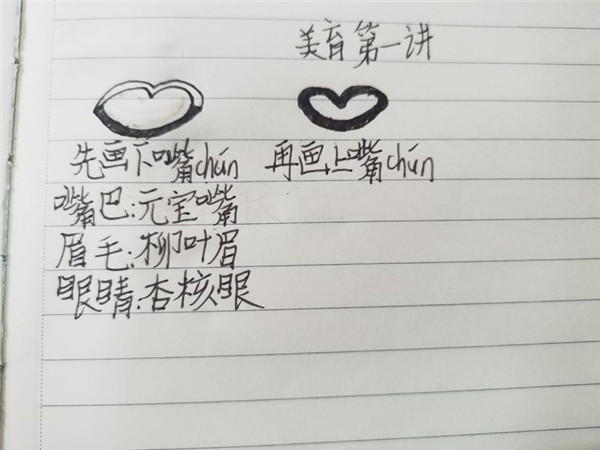 美育第一讲
先画下嘴chún 再画上嘴chún
嘴巴:元宝嘴
眉毛:柳叶眉
眼睛:杏核眼